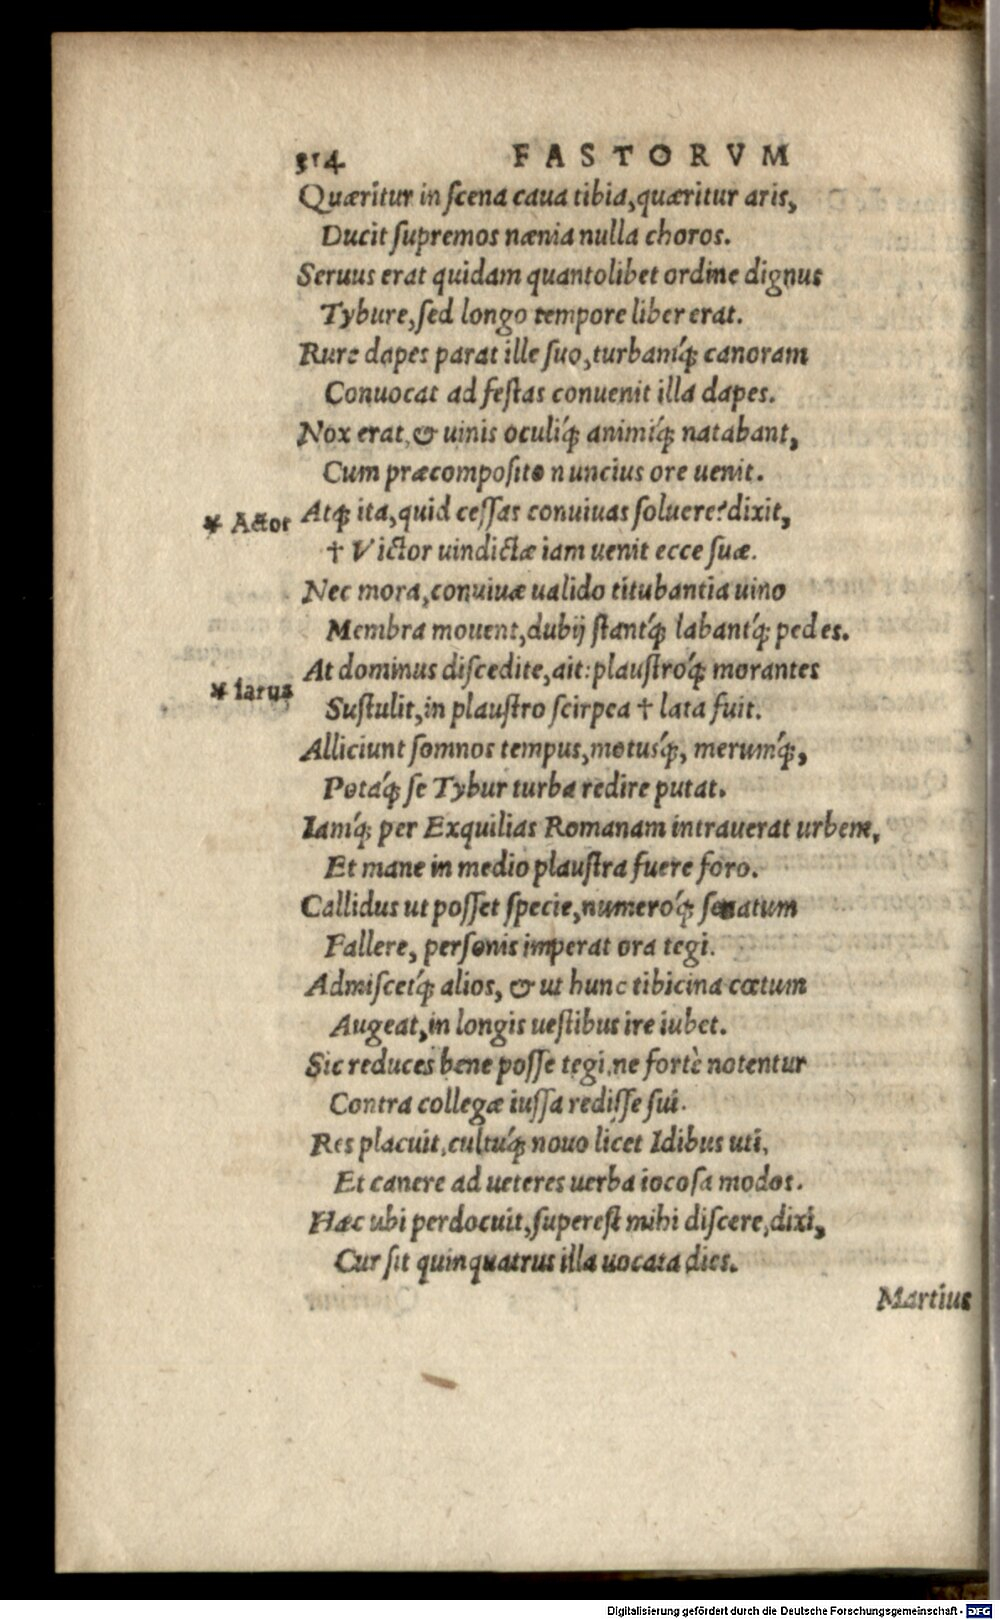 314 FASTORVM
Quæritur in ſcena caua tibia, quæritur aris,
Ducit ſupremos nænia nulla choros.
Seruus erat quidam quantolibet ordine dignus
Tybure, ſed longo tempore liber erat.
Rure dapes parat ille ſuo, turbamq́; canoram
Conuocat ad feſtas conuenit illa dapes.
Nox erat, & uinis oculiq́; animiq́; natabant,
Cum præcompoſito nuncius ore uenit.
* Actor Atq; ita, quid ceſſas conuiuas ſoluere? dixit,
† Victor uindictæ iam uenit ecce ſuæ.
Nec mora, conuiuæ ualido titubantia uino
Membra mouent, dubij ſtantq́; labantq́; pedes.
At dominus diſcedite, ait: plauſtroq́; morantes
* larua Suſtulit, in plauſtro ſcirpea † lata fuit.
Alliciunt ſomnos tempus, motusq́;, merumq́;,
Potaq́; ſe Tybur turba redire putat.
Iamq́; per Exquilias Romanam intrauerat urbem,
Et mane in medio plauſtra fuere foro.
Callidus ut poſſet ſpecie, numeroq́; ſenatum
Fallere, perſonis imperat ora tegi.
Admiſcetq́; alios, & ut hunc tibicina cœtum
Augeat, in longis ueſtibus ire iubet.
Sic reduces bene poſſe tegi, ne fortè notentur
Contra collegæ iuſſa rediſſe ſui.
Res placuit, cultuq́; nouo licet Idibus uti,
Et canere ad ueteres uerba iocoſa modos.
Hæc ubi perdocuit, ſupereſt mihi diſcere, dixi,
Cur ſit quinquatrus illa uocata dies.
Martius
Digitalisierung gefördert durch die Deutsche Forschungsgemeinschaft - DFG